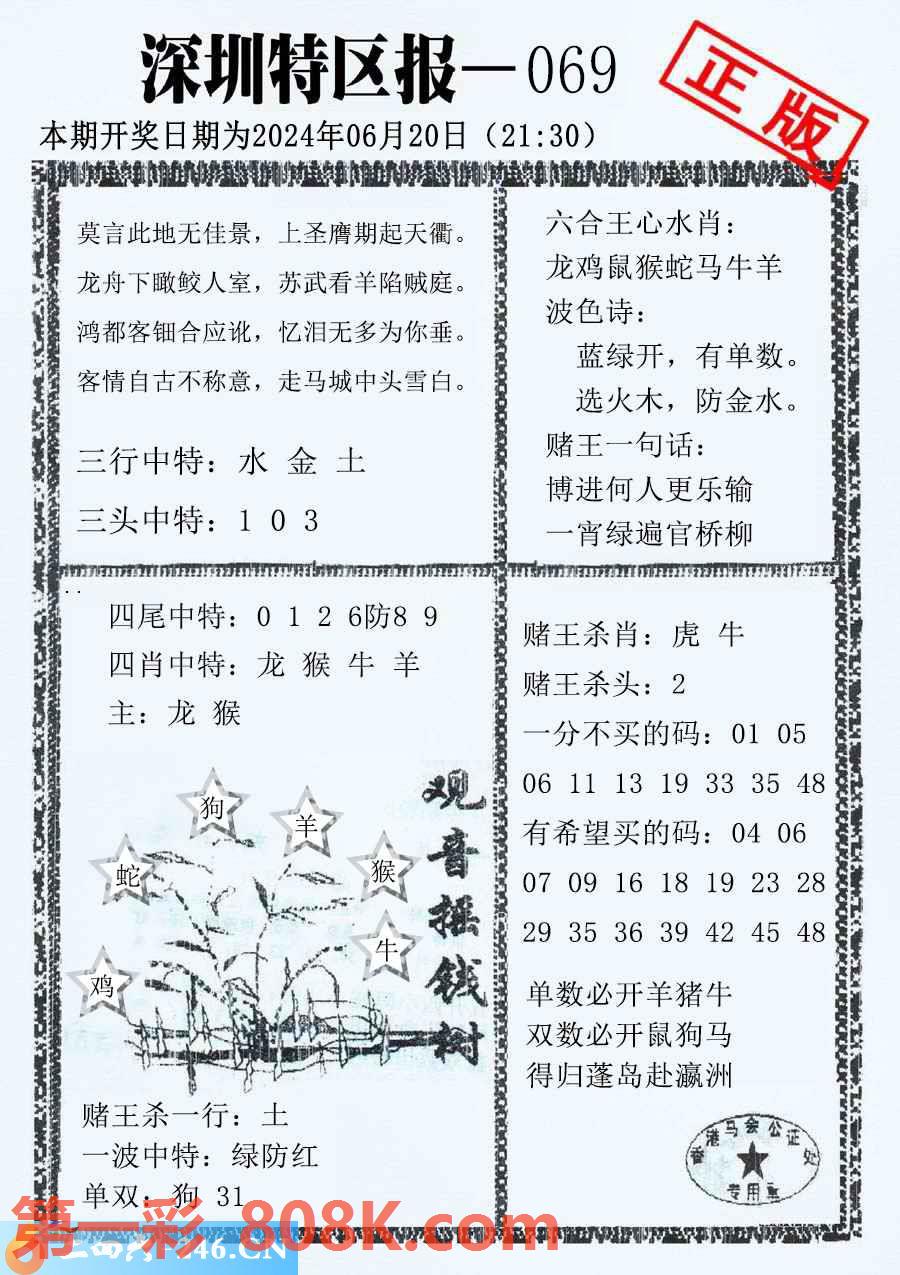 深圳特区报—069
正版
本期开奖日期为2024年06月20日（21:30）
莫言此地无佳景，上圣膺期起天衢。
龙舟下瞰鲛人室，苏武看羊陷贼庭。
鸿都客钿合应讹，忆泪无多为你垂。
客情自古不称意，走马城中头雪白。
三行中特：水 金 土
三头中特：1 0 3
六合王心水肖：
龙鸡鼠猴蛇马牛羊
波色诗：
蓝绿开，有单数。
选火木，防金水。
赌王一句话：
博进何人更乐输
一宵绿遍官桥柳
四尾中特：0 1 2 6防8 9
四肖中特：龙 猴 牛 羊
主：龙 猴
狗
羊
蛇
猴
牛
鸡
观音摇钱树
赌王杀一行：土
一波中特：绿防红
单双：狗 31
赌王杀肖：虎 牛
赌王杀头：2
一分不买的码：01 05
06 11 13 19 33 35 48
有希望买的码：04 06
07 09 16 18 19 23 28
29 35 36 39 42 45 48
单数必开羊猪牛
双数必开鼠狗马
得归蓬岛赴瀛洲
香港马会公证处
专用章
第一彩.808K.com
246.CN